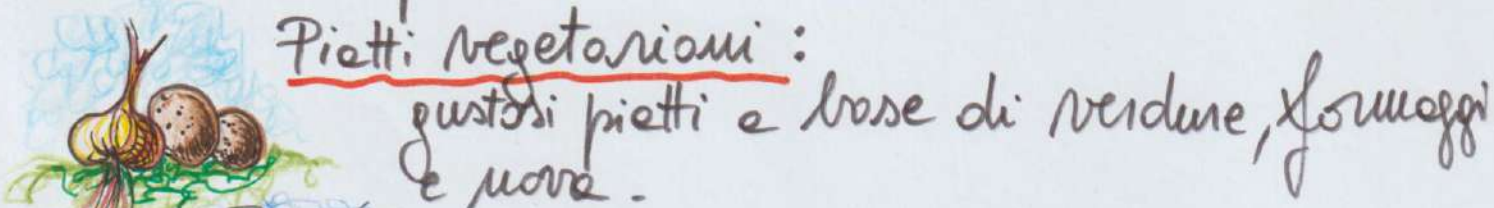 Piatti vegetariani :
gustosi piatti a base di verdure, formaggi
e uova.